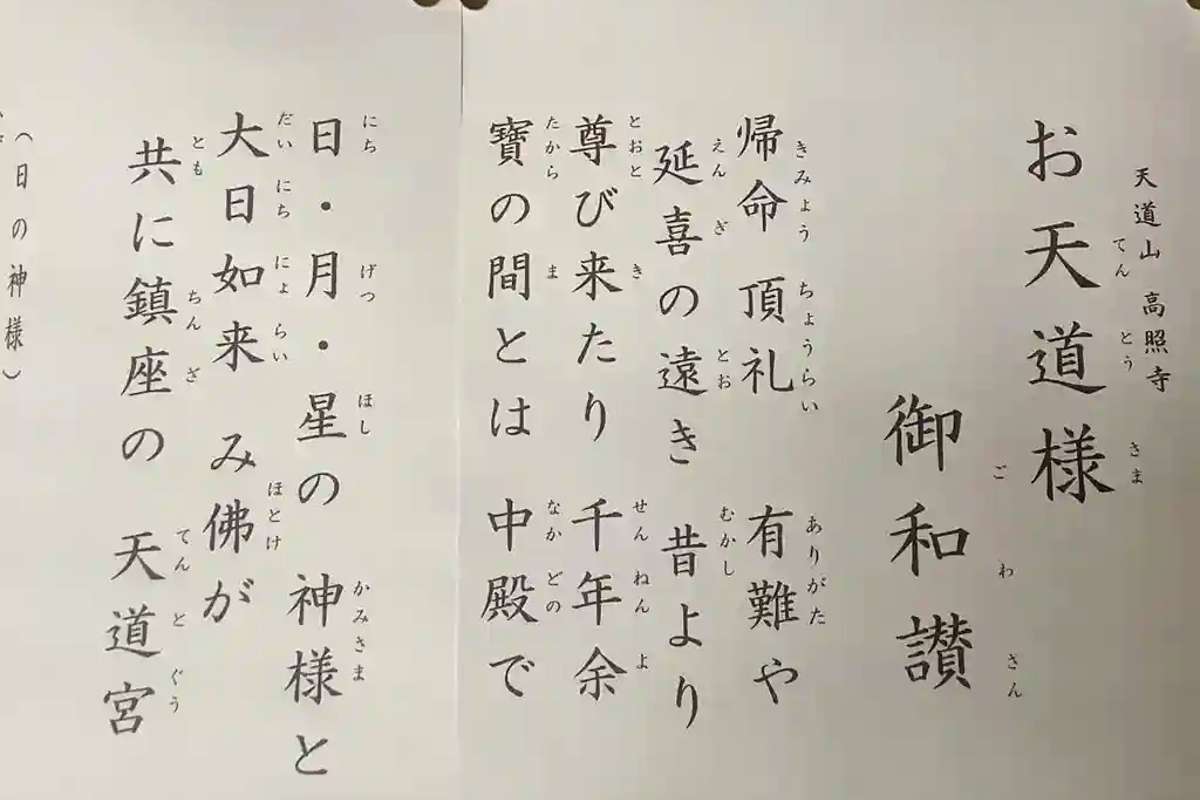 天道山 高照寺
お天道様
御和讃
帰命 頂礼 有難や
延喜の遠き 昔より
尊び来たり 千年余
寶の間とは 中殿で
日・月・星の 神様と
大日如来 み佛が
共に鎮座の 天道宮
（日の神様）